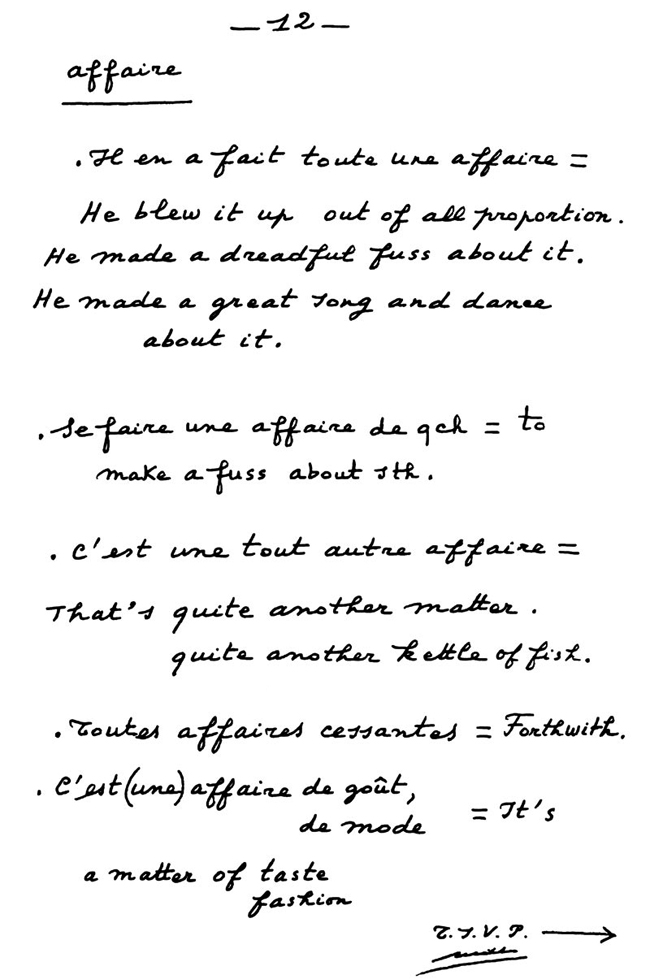 — 12 —
affaire
. Il en a fait toute une affaire =
He blew it up out of all proportion.
He made a dreadful fuss about it.
He made a great song and dance
about it.
. Se faire une affaire de qch = to
make a fuss about sth.
. C'est une tout autre affaire =
That's quite another matter.
quite another kettle of fish.
. Toutes affaires cessantes = Forthwith.
. C'est (une) affaire de goût,
de mode = It's
a matter of taste
fashion
T.S.V.P. →